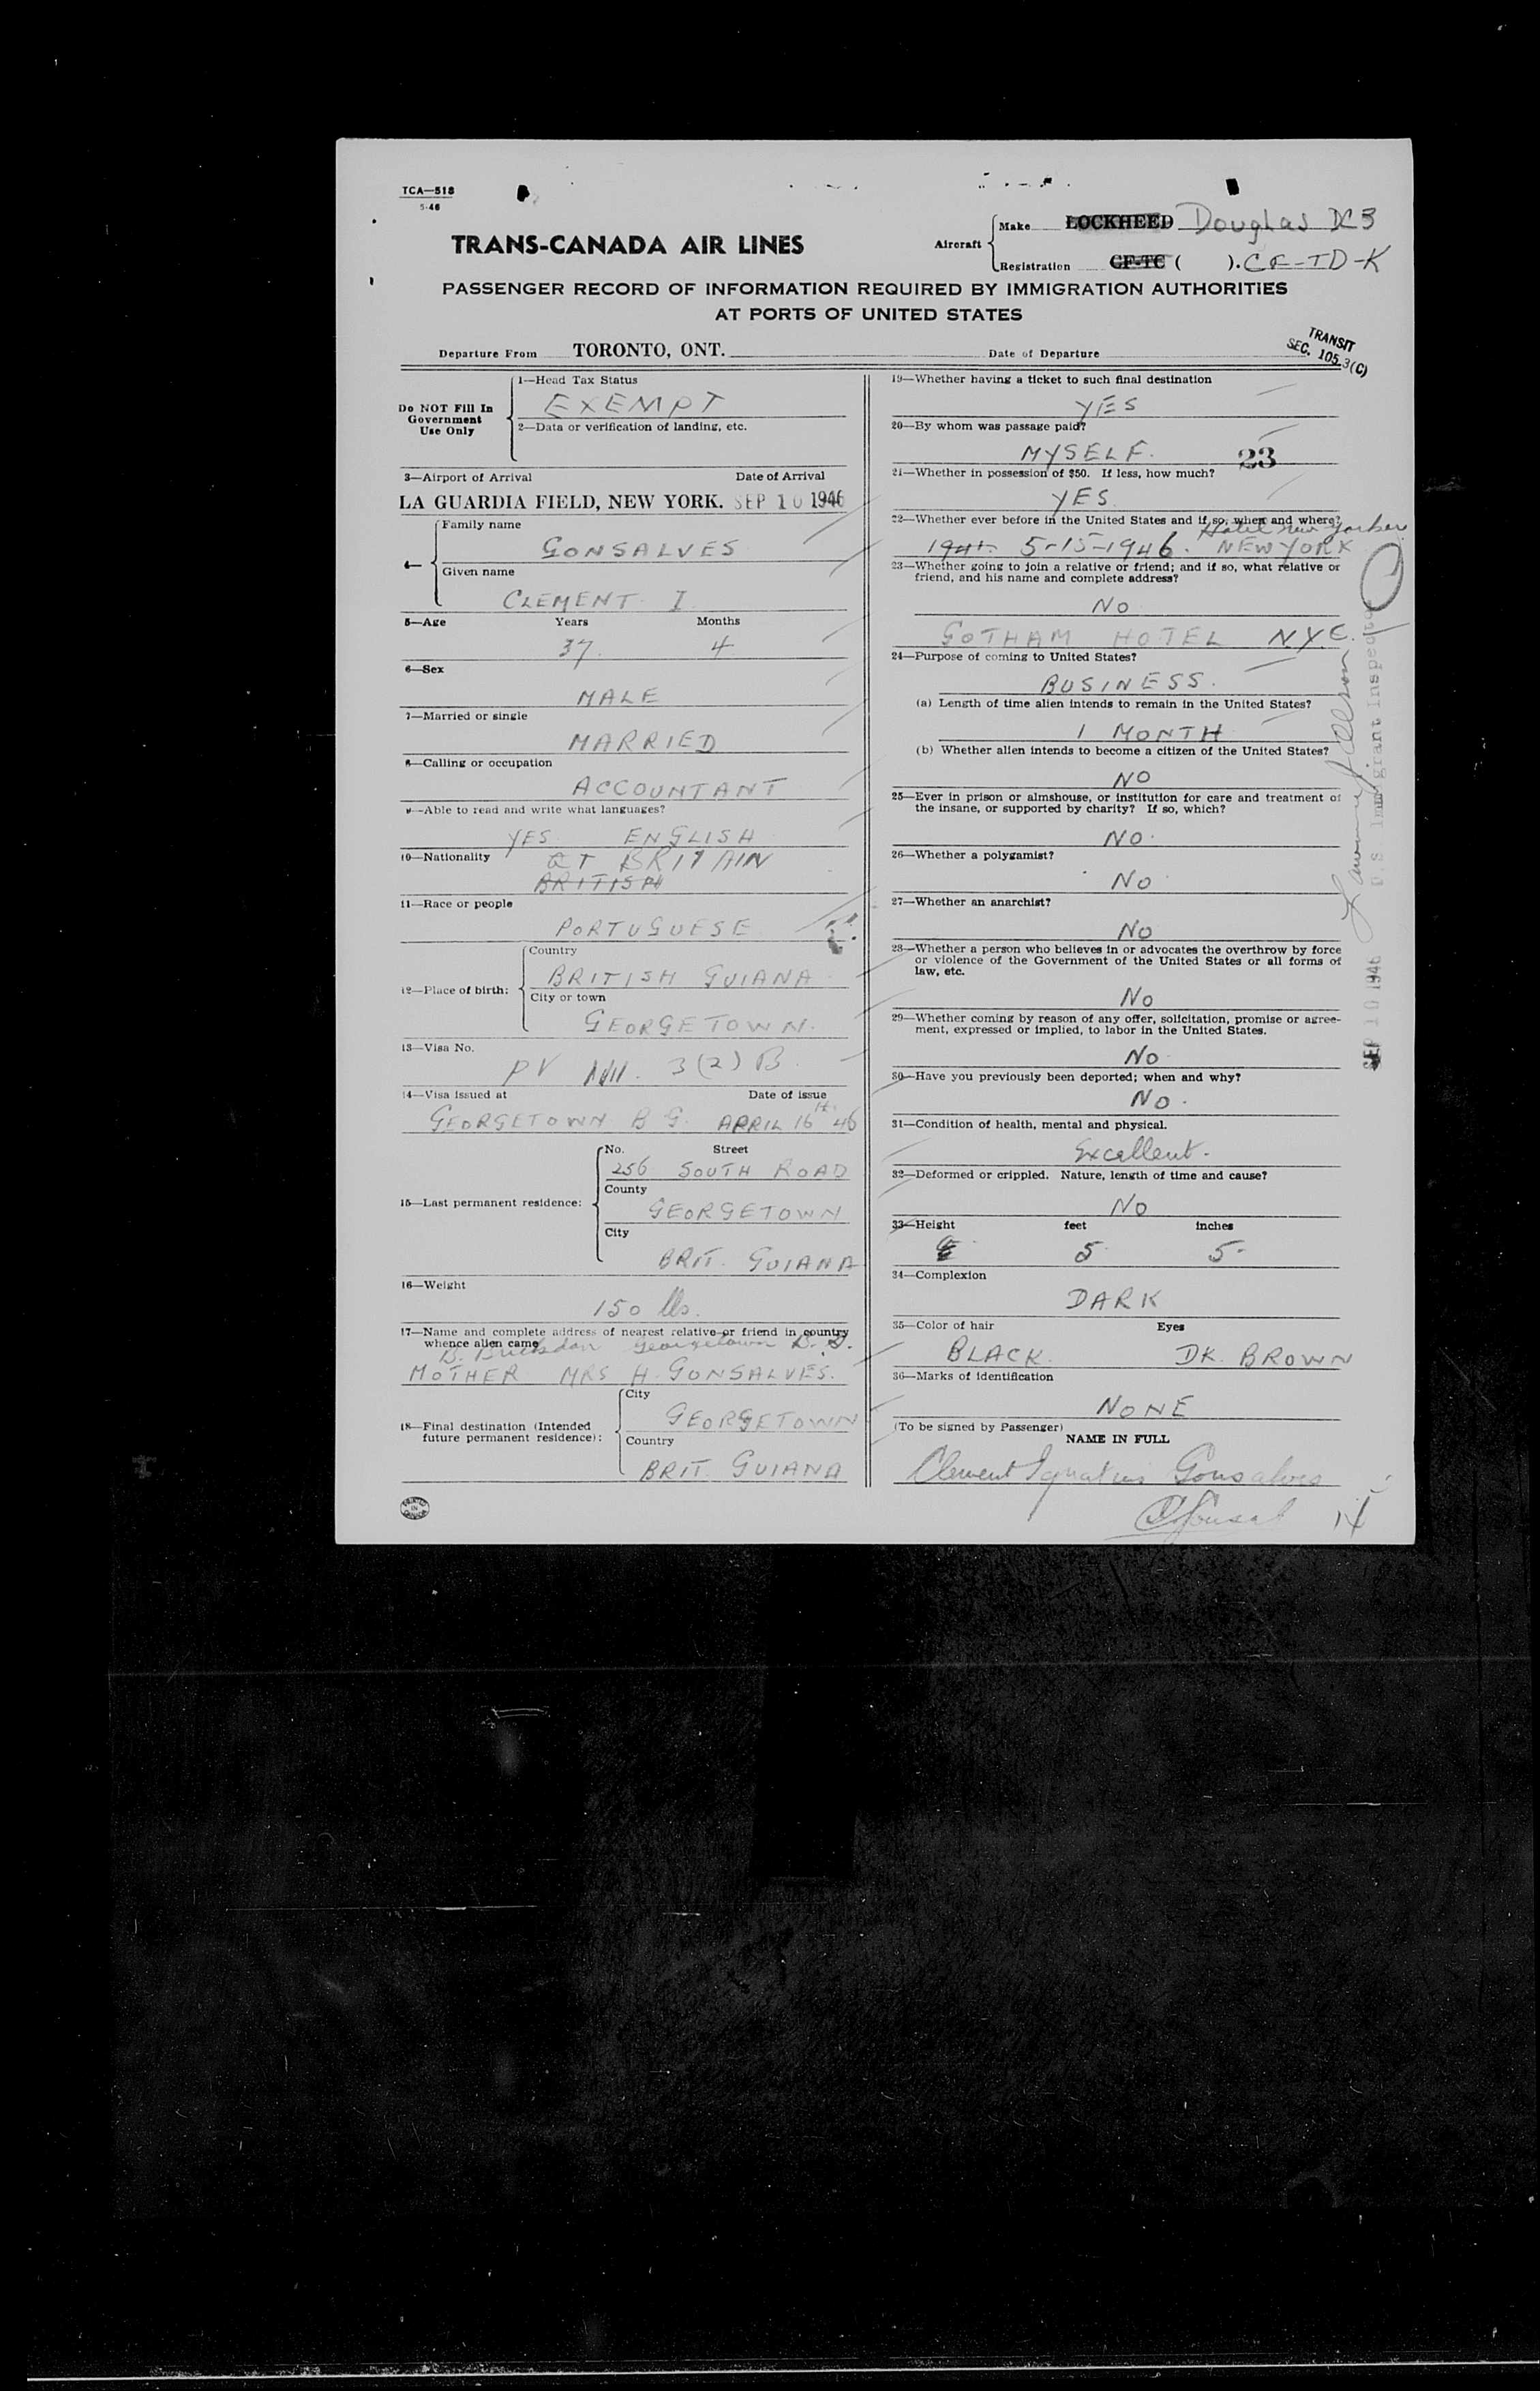 TCA—518
5-46
TRANS-CANADA AIR LINES
Aircraft
Make LOCKHEED Douglas DC3
Registration CF-TC ( ). CF-TD-K
PASSENGER RECORD OF INFORMATION REQUIRED BY IMMIGRATION AUTHORITIES
AT PORTS OF UNITED STATES
Departure From TORONTO, ONT. Date of Departure
TRANSIT
SEC. 105.3(C)
Do NOT Fill In
Government
Use Only
1—Head Tax Status
EXEMPT
2—Data or verification of landing, etc.
3—Airport of Arrival Date of Arrival
LA GUARDIA FIELD, NEW YORK. SEP 10 1946
4—
Family name
GONSALVES
Given name
CLEMENT I
5—Age Years Months
37 4
6—Sex
MALE
7—Married or single
MARRIED
8—Calling or occupation
ACCOUNTANT
9—Able to read and write what languages?
YES ENGLISH
10—Nationality GT BRITAIN
BRITISH
11—Race or people
PORTUGUESE
12—Place of birth:
Country
BRITISH GUIANA
City or town
GEORGETOWN.
13—Visa No.
PV 3(2) B
14—Visa issued at Date of issue
GEORGETOWN B G. APRIL 16th 46
15—Last permanent residence:
No. Street
256 SOUTH ROAD
County
GEORGETOWN
City
BRIT. GUIANA
16—Weight
150 lbs.
17—Name and complete address of nearest relative or friend in country
whence alien came
Georgetown B. G.
MOTHER MRS H. GONSALVES.
18—Final destination (Intended
future permanent residence):
City
GEORGETOWN
Country
BRIT. GUIANA
19—Whether having a ticket to such final destination
YES
20—By whom was passage paid?
MYSELF. 23
21—Whether in possession of $50. If less, how much?
YES
22—Whether ever before in the United States and if so, when and where?
Hotel New Yorker
1941- 5-15-1946. NEW YORK
23—Whether going to join a relative or friend; and if so, what relative or
friend, and his name and complete address?
NO
GOTHAM HOTEL N.Y.C.
24—Purpose of coming to United States?
BUSINESS.
(a) Length of time alien intends to remain in the United States?
1 MONTH
(b) Whether alien intends to become a citizen of the United States?
NO
25—Ever in prison or almshouse, or institution for care and treatment of
the insane, or supported by charity? If so, which?
NO.
26—Whether a polygamist?
NO
27—Whether an anarchist?
NO
28—Whether a person who believes in or advocates the overthrow by force
or violence of the Government of the United States or all forms of
law, etc.
NO
29—Whether coming by reason of any offer, solicitation, promise or agree-
ment, expressed or implied, to labor in the United States.
NO
30—Have you previously been deported; when and why?
NO.
31—Condition of health, mental and physical.
Excellent.
32—Deformed or crippled. Nature, length of time and cause?
NO
33—Height feet inches
5 5
34—Complexion
DARK
35—Color of hair Eyes
BLACK. DK. BROWN
36—Marks of identification
NONE
(To be signed by Passenger)
NAME IN FULL
Clement Ignatius Gonsalves
SEP 10 1946 U.S. Immigrant Inspector
PRINTED
IN
CANADA